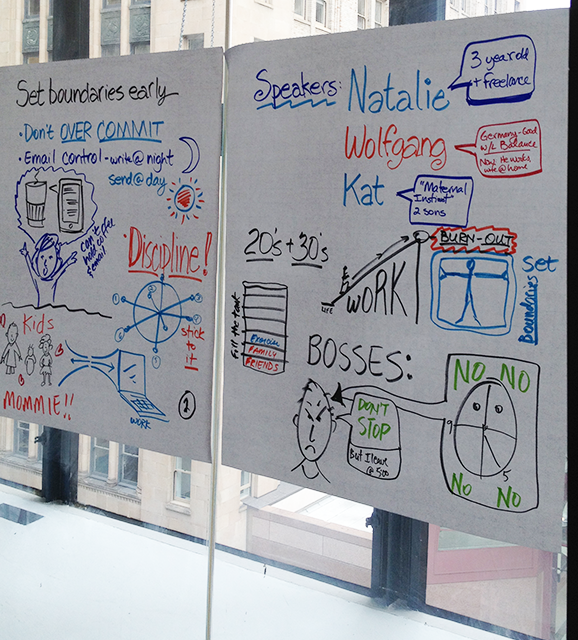 Set boundaries early
• Don't OVER COMMIT
• Email control - write @ night
send @ day
can't hold coffee
& email
Discipline!
stick
to
it
Kids
MOMMIE!!
WORK
1
Speakers:
Natalie
3 year old
+ Freelance
Wolfgang
Germany - Good
W/L Balance
Now: He works
w/kids @ home
Kat
"Maternal
Instinct"
2 sons
20's + 30's
Fill the tank
Exercise
FAMILY
FRIENDS
LIFE
WORK
BURN-OUT
Set
Boundaries
BOSSES:
DON'T
STOP
But I leave
@ 5:00
NO NO
9
5
No No